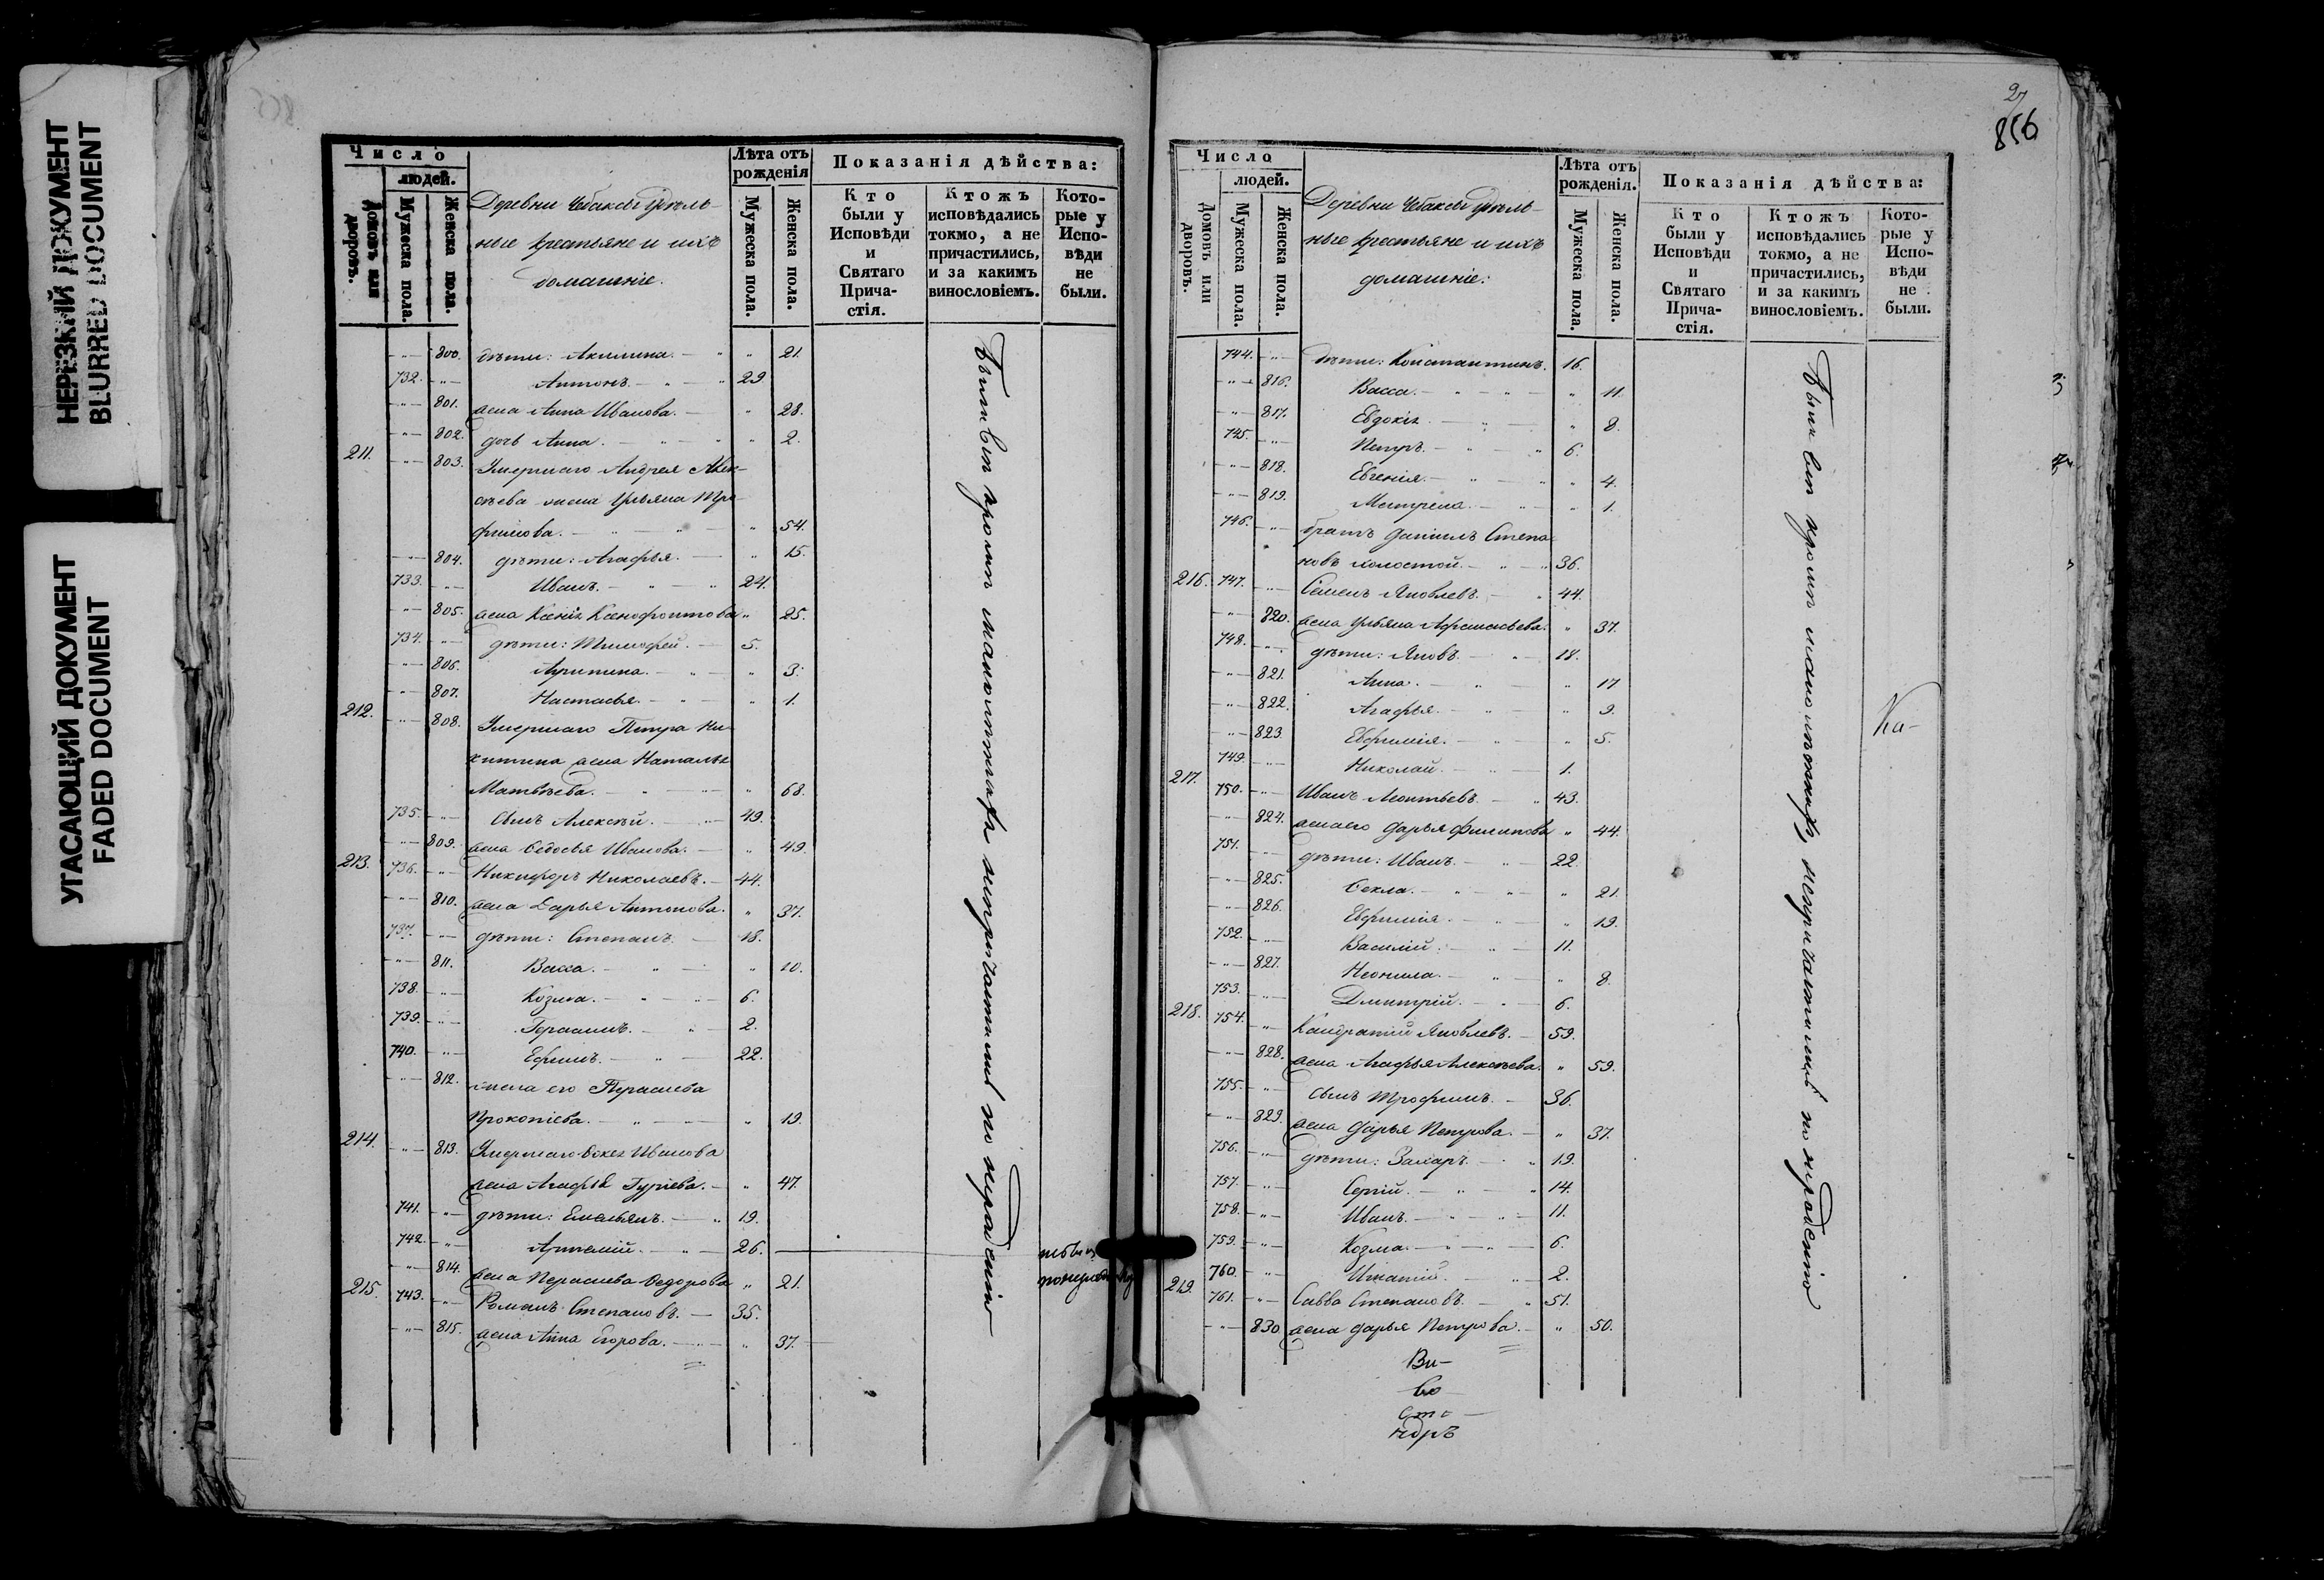 НЕРЕЗКИЙ ДОКУМЕНТ
BLURRED DOCUMENT
УГАСАЮЩИЙ ДОКУМЕНТ
FADED DOCUMENT
Число
людей.
Домовъ или дворовъ.
Мужеска пола.
Женска пола.
Деревни Чебаксы Удѣль-
ные крестьяне и ихъ
домашніе.
Лѣта отъ рожденія
Мужеска пола.
Женска пола.
Показанія дѣйства:
Кто были у Исповѣди и Святаго Прича-стія.
Ктожъ исповѣдались токмо, а не причастились, и за какимъ винословіемъ.
Кото-рые у Испо-вѣди не были.
800. дѣти: Акилина. " 21.
732. Антонъ. 29
801. жена Анна Иванова. " 28.
802. дочь Анна. " 2.
211. 803. Умершаго Андрея Алек-
сѣева жена Ульяна Тро-
фимова. " 54.
804. дѣти: Агафья. " 15.
733. Иванъ. 24.
805. жена Ксенія Ксенофонтова " 25.
734. дѣти: Тимофей. 5.
806. Арипина. " 3.
807. Настасья. " 1.
212. 808. Умершаго Петра Ни-
китина жена Наталья
Матвѣева. " 68.
735. Сынъ Алексѣй. 49.
809. жена Ѳедосья Иванова. " 49.
213. 736. Никифоръ Николаевъ. 44.
810. жена Дарья Антонова. " 37.
737. дѣти: Степанъ. 18.
811. Васса. " 10.
738. Козма. 6.
739. Герасимъ. 2.
740. Ефимъ. 22.
812. жена его Параскева
Прокопіева. " 19.
214. 813. Умершаго Ѳоки Иванова
жена Агафья Гуріева. " 47.
741. дѣти: Емельянъ. 19.
742. Артемій. 26.
814. жена Параскева Ѳедорова " 21.
215. 743. Романъ Степановъ. 35.
815. жена Анна Егорова. " 37.
Были вси кромѣ малолѣтнихъ непричастились по нерадѣнію
27
856
Число
людей.
Домовъ или дворовъ.
Мужеска пола.
Женска пола.
Деревни Чебаксы Удѣль-
ные крестьяне и ихъ
домашніе:
Лѣта отъ рожденія.
Мужеска пола.
Женска пола.
Показанія дѣйства:
Кто были у Исповѣди и Святаго Прича-стія.
Ктожъ исповѣдались токмо, а не причастились, и за какимъ винословіемъ.
Кото-рые у Испо-вѣди не были.
744. дѣти: Константинъ. 16.
816. Васса. " 11.
817. Евдокія. " 8.
745. Петръ. 6.
818. Евгенія. " 4.
819. Матрена. " 1.
746. братъ Даніилъ Степа-
новъ холостой. 36.
216. 747. Семенъ Яковлевъ. 44.
820. жена Ульяна Афанасьева. " 37.
748. дѣти: Яковъ. 18.
821. Анна. " 17
822. Агафья. " 9.
823. Евфимія. " 5.
749. Николай. 1.
217. 750. Иванъ Леонтьевъ. 43.
824. жена его Дарья Филипова " 44.
751. дѣти: Иванъ. 22.
825. Ѳекла. " 21.
826. Евфимія. " 19.
752. Василій. 11.
827. Неонила. " 8.
753. Дмитрій. 6.
218. 754. Кандратій Яковлевъ. 59.
828. жена Агафья Алексѣева. " 59.
755. Сынъ Трофимъ. 36.
829. жена Дарья Петрова. " 37.
756. дѣти: Захаръ. 19.
757. Сергій. 14.
758. Иванъ. 11.
759. Козма. 6.
760. Игнатій. 2.
219. 761. Савва Степановъ. 51.
830 жена Дарья Петрова. " 50.
Были вси кромѣ малолѣтнихъ, непричастились по нерадѣнію
Ка-